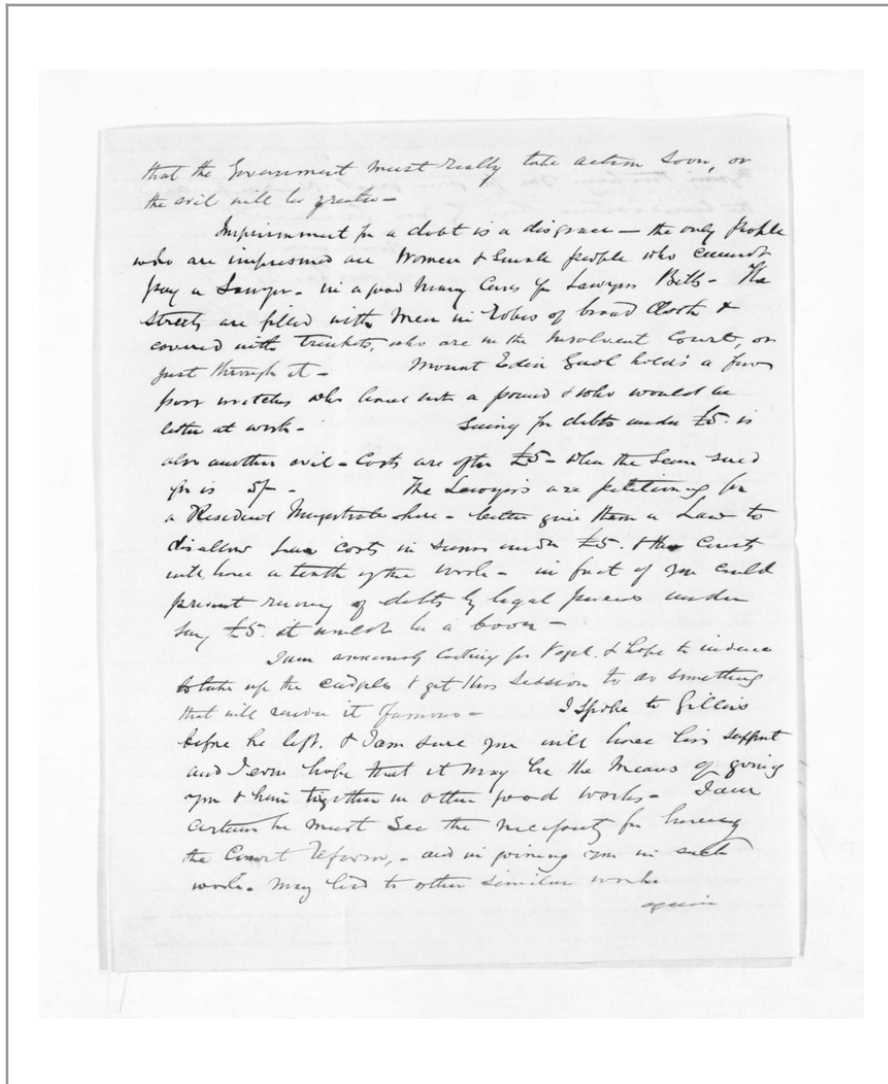 that the Government must really take action soon, or
the evil will be greater –
Imprisonment for a debt is a disgrace – the only people
who are imprisoned are Women & Small people who cannot
pay a Lawyer – in a good many Cases for Lawyers Bills – The
streets are filled with Men in robes of broad Cloth &
covered with trinkets, who are in the Insolvent Court, or
just through it – Mount Eden Gaol holds a few
poor wretches who have not a pound & who would be
better at work – Suing for debts under £5. is
also another evil – Costs are often £5 – when the Sum sued
for is 5/- – The Lawyers are petitioning for
a Resident Magistrate here – better give them a Law to
disallow costs in sums under £5. & the Courts
will have a tenth of the work – in fact if you could
prevent recovery of debts by legal process under
say £5. it would be a boon –
I am anxiously looking for Vogel. & hope to induce
to take up the cudgels & get this Session to do something
that will render it famous – I spoke to Gillies
before he left. & I am sure you will have his support
and I even hope that it may be the means of
you & him together in other good works – I am
certain he must see the necessity for having
the Court Reform, – and in joining you in such
work – may lead to other similar work
again